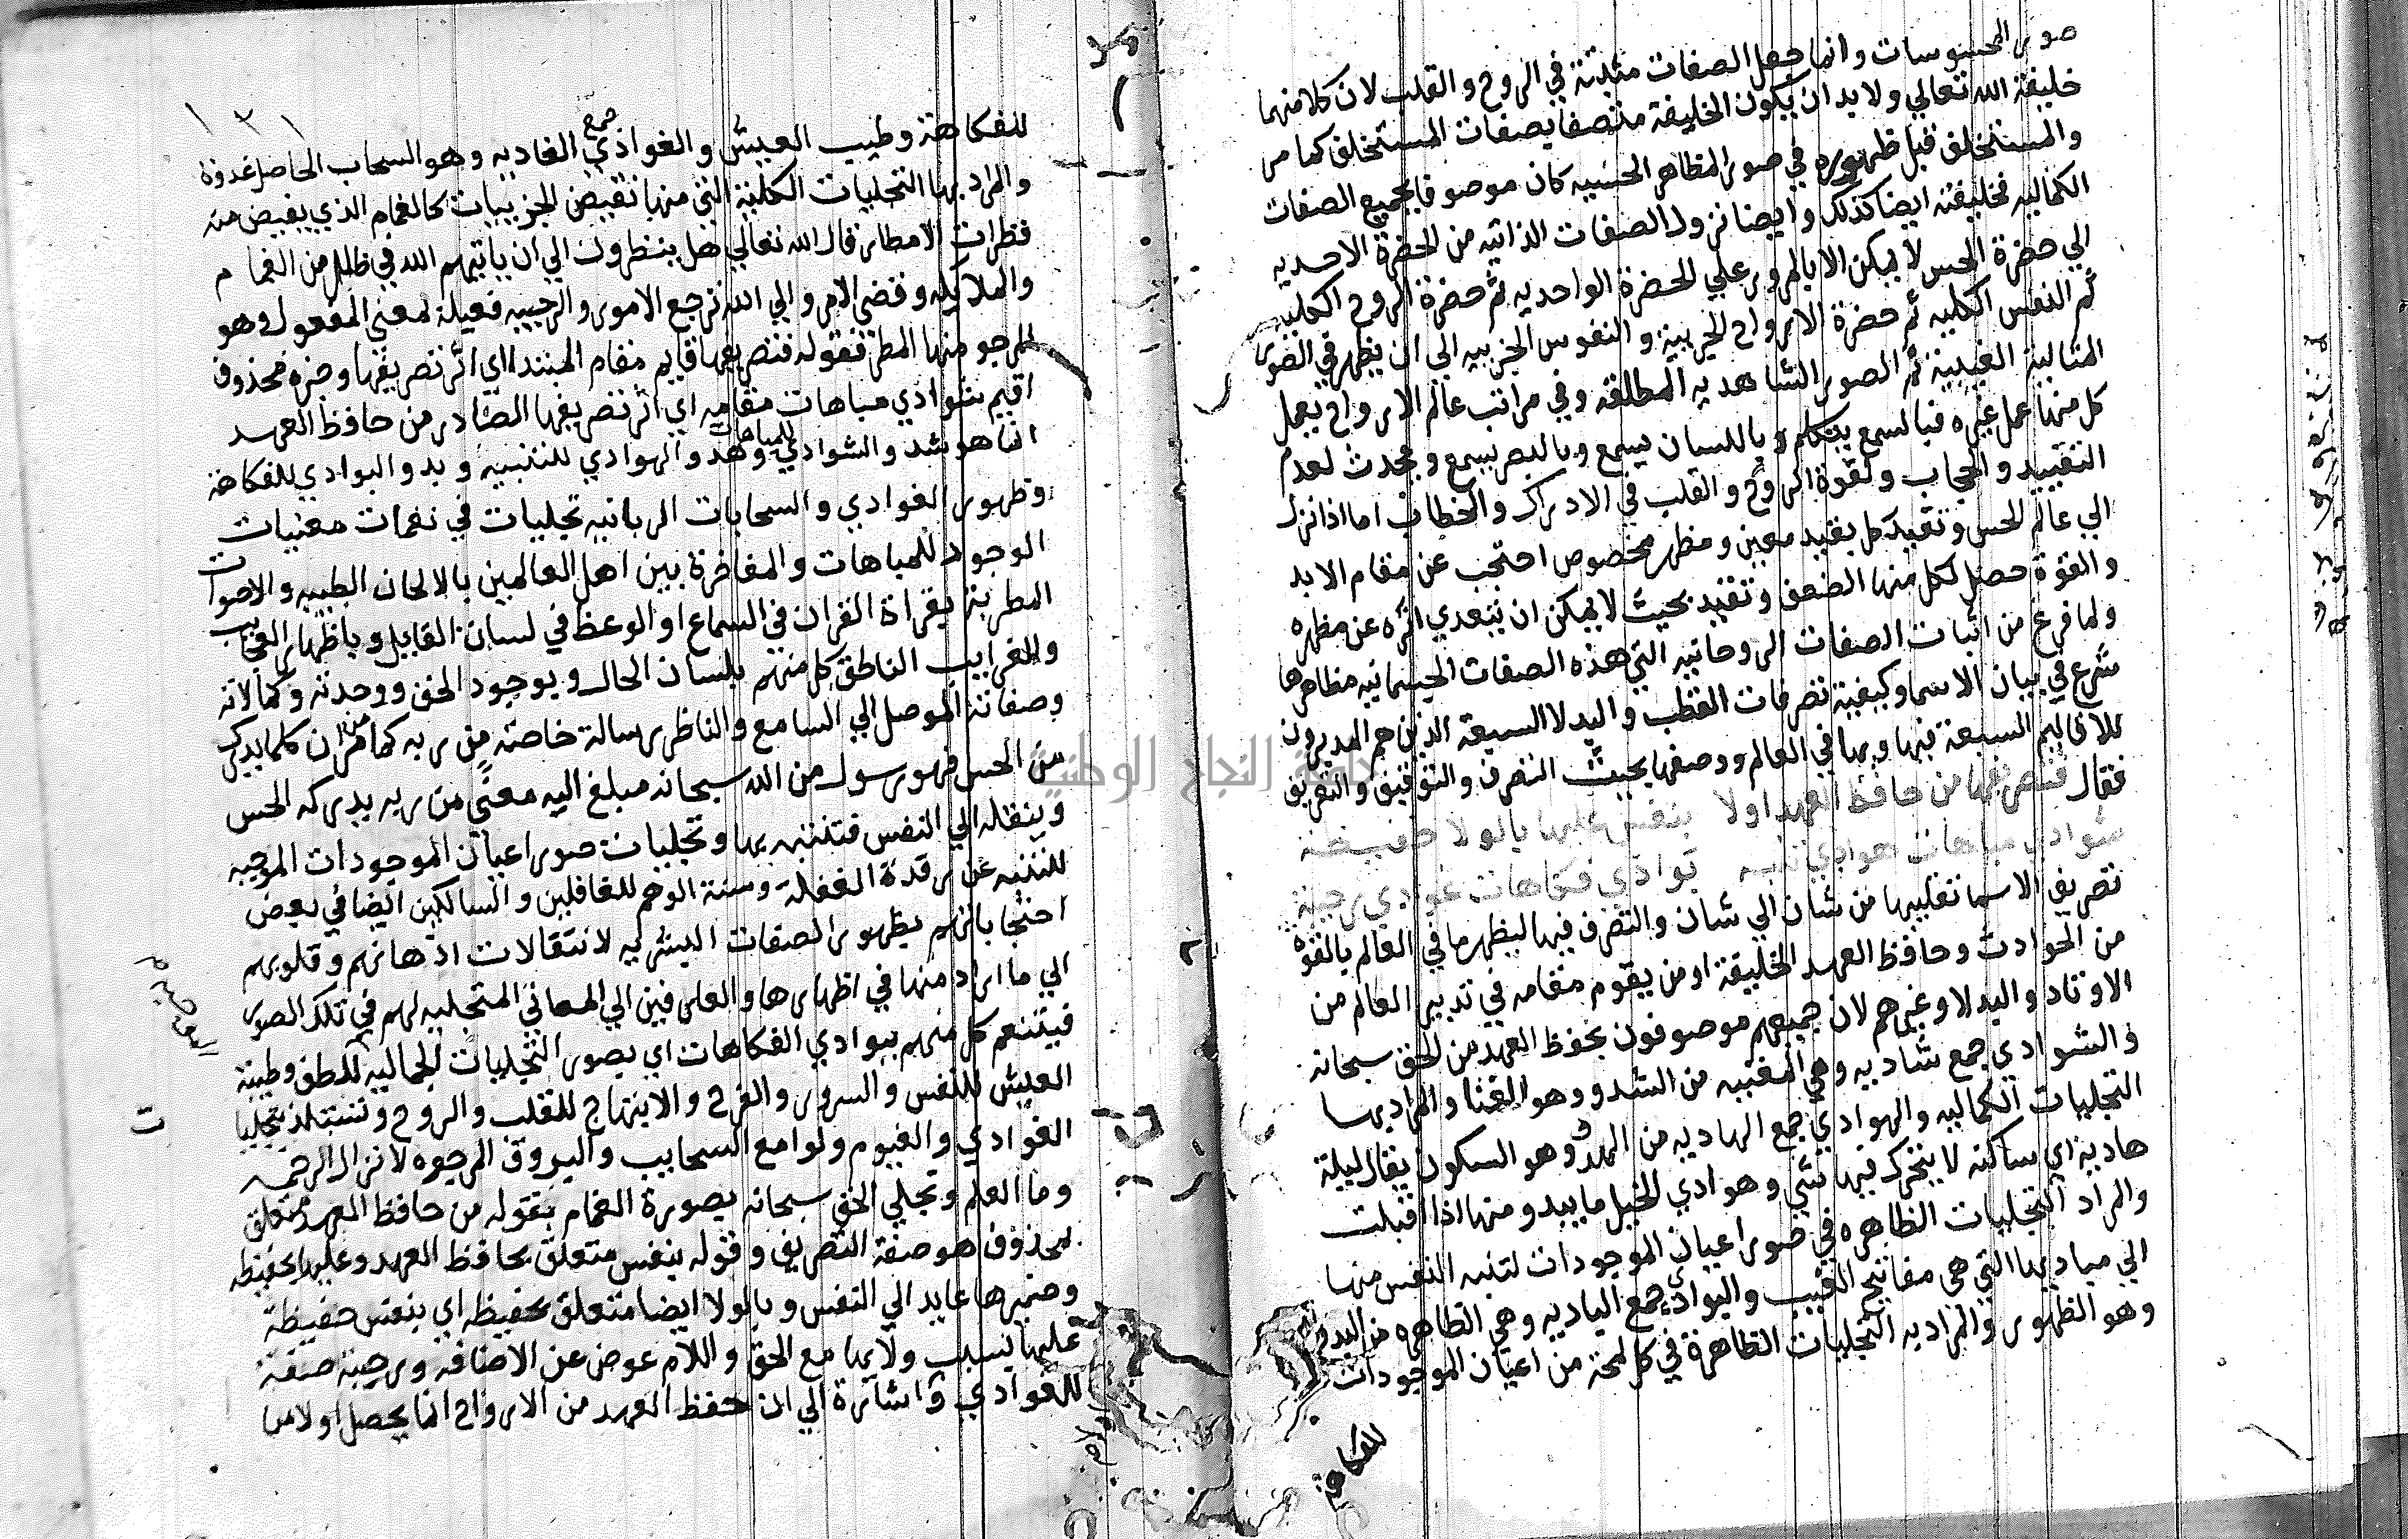 صور المحسوسات وانما جعل الصفات مثبتة في الروح والقلب لان كلا منهما
خليفة الله تعالي ولا بد ان يكون الخليفة متصفا بصفات المستخلف كما مر
والمستخلف قبل ظهوره في صور المظاهر الحسيه كان موصوفا بجميع الصفات
الكماليه فخليفته ايضا كذلك وايضا نزول الصفات الذاتيه من الحضرة الاحديه
الي حضرة الحس لا يمكن الا بالمرور علي الحضرة الواحديه ثم حضرة الروح الكليه
ثم النفس الكليه ثم حضرة الارواح الجزييه والنفوس الجزييه الي ان يظهر في الصور
المثاليه الغيبية ثم الصور الشاهديه المطلقة وفي مراتب عالم الارواح يعمل
كل منها عمل غيره فبالسمع يتكلم وباللسان يسمع وبالبصر يسمع ويحدث لعدم
التقييد والحجاب ولقوة الروح والقلب في الادراك والخطاب اما اذا نزل
الي عالم الحس وتقيد كل بقيد معين ومظهر مخصوص احتجب عن مقام الايد
والقوة حصل لكل منها الضعف وتقيد بحيث لا يمكن ان يتعدي اثره عن مظهره
ولما فرغ من اثبات الصفات الروحانيه التي هذه الصفات الجسمانيه مظاهرها
شرع في بيان الاسما وكيفية تصرفات القطب والبدلا السبعة الذين هم المدبرون
للاقاليم السبعة فيها وبها في العالم ووصفها بحيث التصرف والتوفيق والتفريق
فقال فتصريفها من حافظ العهد اولا بنفس عليها بالولا حفيظة
شوادي مباهات هوادي تنبيه بوادي فكاهات غوادي رجية
تصريف الاسما تقليبها من شان الي شان والتصرف فيها ليظهر ما في العالم بالقوة
من الحوادث وحافظ العهد الخليفة او من يقوم مقامه في تدبير العالم من
الاوتاد والبدلا وغيرهم لان جميعهم موصوفون بحفظ العهد من الحق سبحانه
والشوادي جمع شاديه وهي المغنيه من الشدو وهو الغنا والمراد بها
التجليات الكماليه والهوادي جمع الهاديه من الهدؤ وهو السكون يقال ليلة
هادية اي ساكنه لا يتحرك فيها شي وهوادي الخيل ما يبدو منها اذا اقبلت
والمراد التجليات الظاهره في صور اعيان الموجودات لتنبه النفس منها
الي مباديها التي هي مفاتيح الغيب والبوادي جمع الباديه وهي الظاهره من البدو
وهو الظهور والمراد به التجليات الظاهرة في كل لمحة من اعيان الموجودات
للفكاهة
للفكاهة وطيب العيش والغوادي جمع الغاديه وهو السحاب الحاصل غدوة
والمراد بها التجليات الكلية التي منها تفيض الجزييات كالغمام الذي يفيض منه
قطرات الامطار قال الله تعالي هل ينظرون الي ان ياتيهم الله في ظلل من الغمام
والملايكه وقضي الامر والي الله ترجع الامور والرجيه فعيلة لمعني المفعول وهو
المرجو منها المطر فقوله فتصريفها قايم مقام المبتدا اي اثر تصريفها وخبره محذوف
اقيم شوادي مباهات مقامه اي اثر تصريفها الصادر من حافظ العهد
انما هو شد والشوادي للمباهات وهد والهوادي للتنبيه وبد والبوادي للفكاهة
وظهور الغوادي والسحابات الربانيه تجليات في نغمات مغنيات
الوجود للمباهات والمفاخرة بين اهل العالمين بالالحان الطيبه والاصوات
المطربة بقراة القران في السماع او الوعظ في لسان القايل وباظهار العجايب
والغرايب الناطق كل منهم بلسان الحال وبوجود الحق ووحدته وكمالاته
وصفاته الموصل الي السامع والناظر رسالة خاصة من ربه كما مر ان كلما يدرك
من الحس فهو رسول من الله سبحانه مبلغ اليه معنًي من ربه يدركه الحس
وينقله الي النفس فتتنبه بها وتجليات صور اعيان الموجودات الموجبه
للتنبه عن رقدة الغفلة وسنة الوهم للغافلين والسالكين ايضا في بعض
احتجاباتهم بظهور الصفات البشريه لانتقالات اذهانهم وقلوبهم
الي ما اراد منها في اظهارها والعارفين الي المعاني المتجليه لهم في تلك الصور
فيتنعم كل منهم ببوادي الفكاهات اي بصور التجليات الجماليه للطف وطيبة
العيش للنفس والسرور والفرح والابتهاج للقلب والروح وتستلذ بتجليات
الغوادي والغيوم ولوامع السحايب والبروق المرجوه لانزال الرحمه
وما العلم وتجلي الحق سبحانه بصورة الغمام بقوله من حافظ العهد متعلق
بمحذوف هو صفة التصريف وقوله بنفس متعلق بحافظ العهد وعليها بحفيظه
وضميرها عايد الي النفس وبالولا ايضا متعلق بحفيظه اي بنفس حفيظة
عليها بسبب ولايها مع الحق واللام عوض عن الاضافه ورجية صفة
للغوادي واشارة الي ان حفظ العهد من الارواح انما يحصل اولا من
جامعة النجاح الوطنية